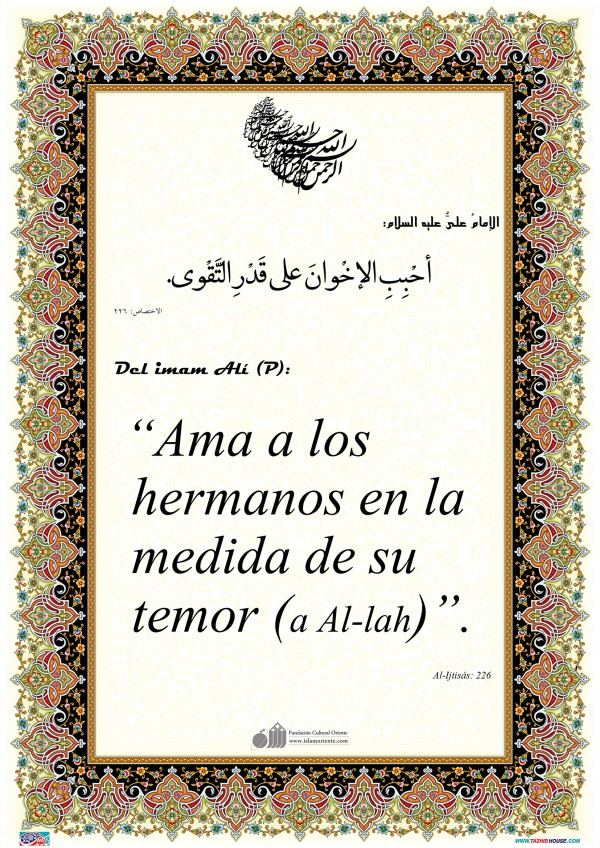 الإمامُ عليٌّ عليه السلام:
أحْبِبِ الإخْوانَ على قَدْرِ التَّقْوى.
الاختصاص: ٢٢٦
Del imam Alí (P):
“Ama a los
hermanos en la
medida de su
temor (a Al-lah)”.
Al-Ijtisás: 226
Fundación Cultural Oriente
www.islamoriente.com
WWW.TAZHIBHOUSE.COM